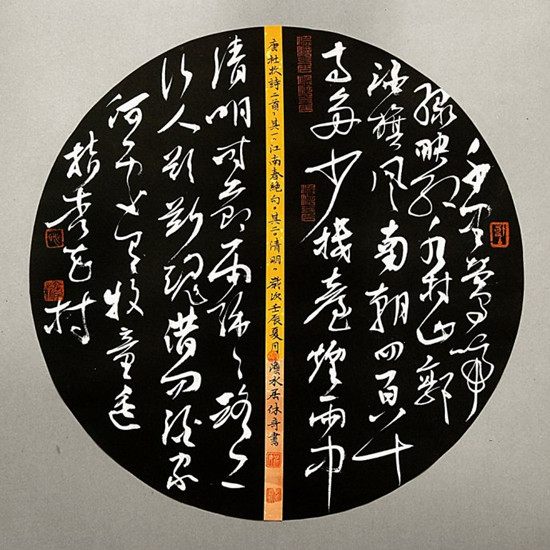 千里莺啼
绿映红水村山郭
酒旗风南朝四百八十
寺多少楼臺煙雨中
唐杜牧詩二首，其一江南春绝句。其二清明。歲次壬辰夏月 水居休哥書
清明时节雨纷纷路上
行人欲断魂借问酒家
何处有牧童遥
指杏花村